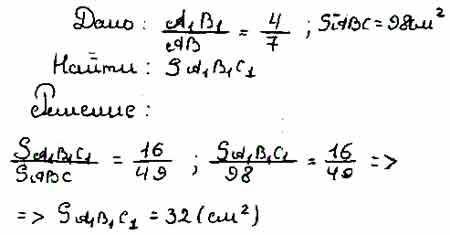 Дано: A₁B₁/AB = 4/7 ; SABC = 98см²
Найти: SA₁B₁C₁
Решение:
SA₁B₁C₁/SABC = 16/49 ; SA₁B₁C₁/98 = 16/49 =>
=> SA₁B₁C₁ = 32 (см²)